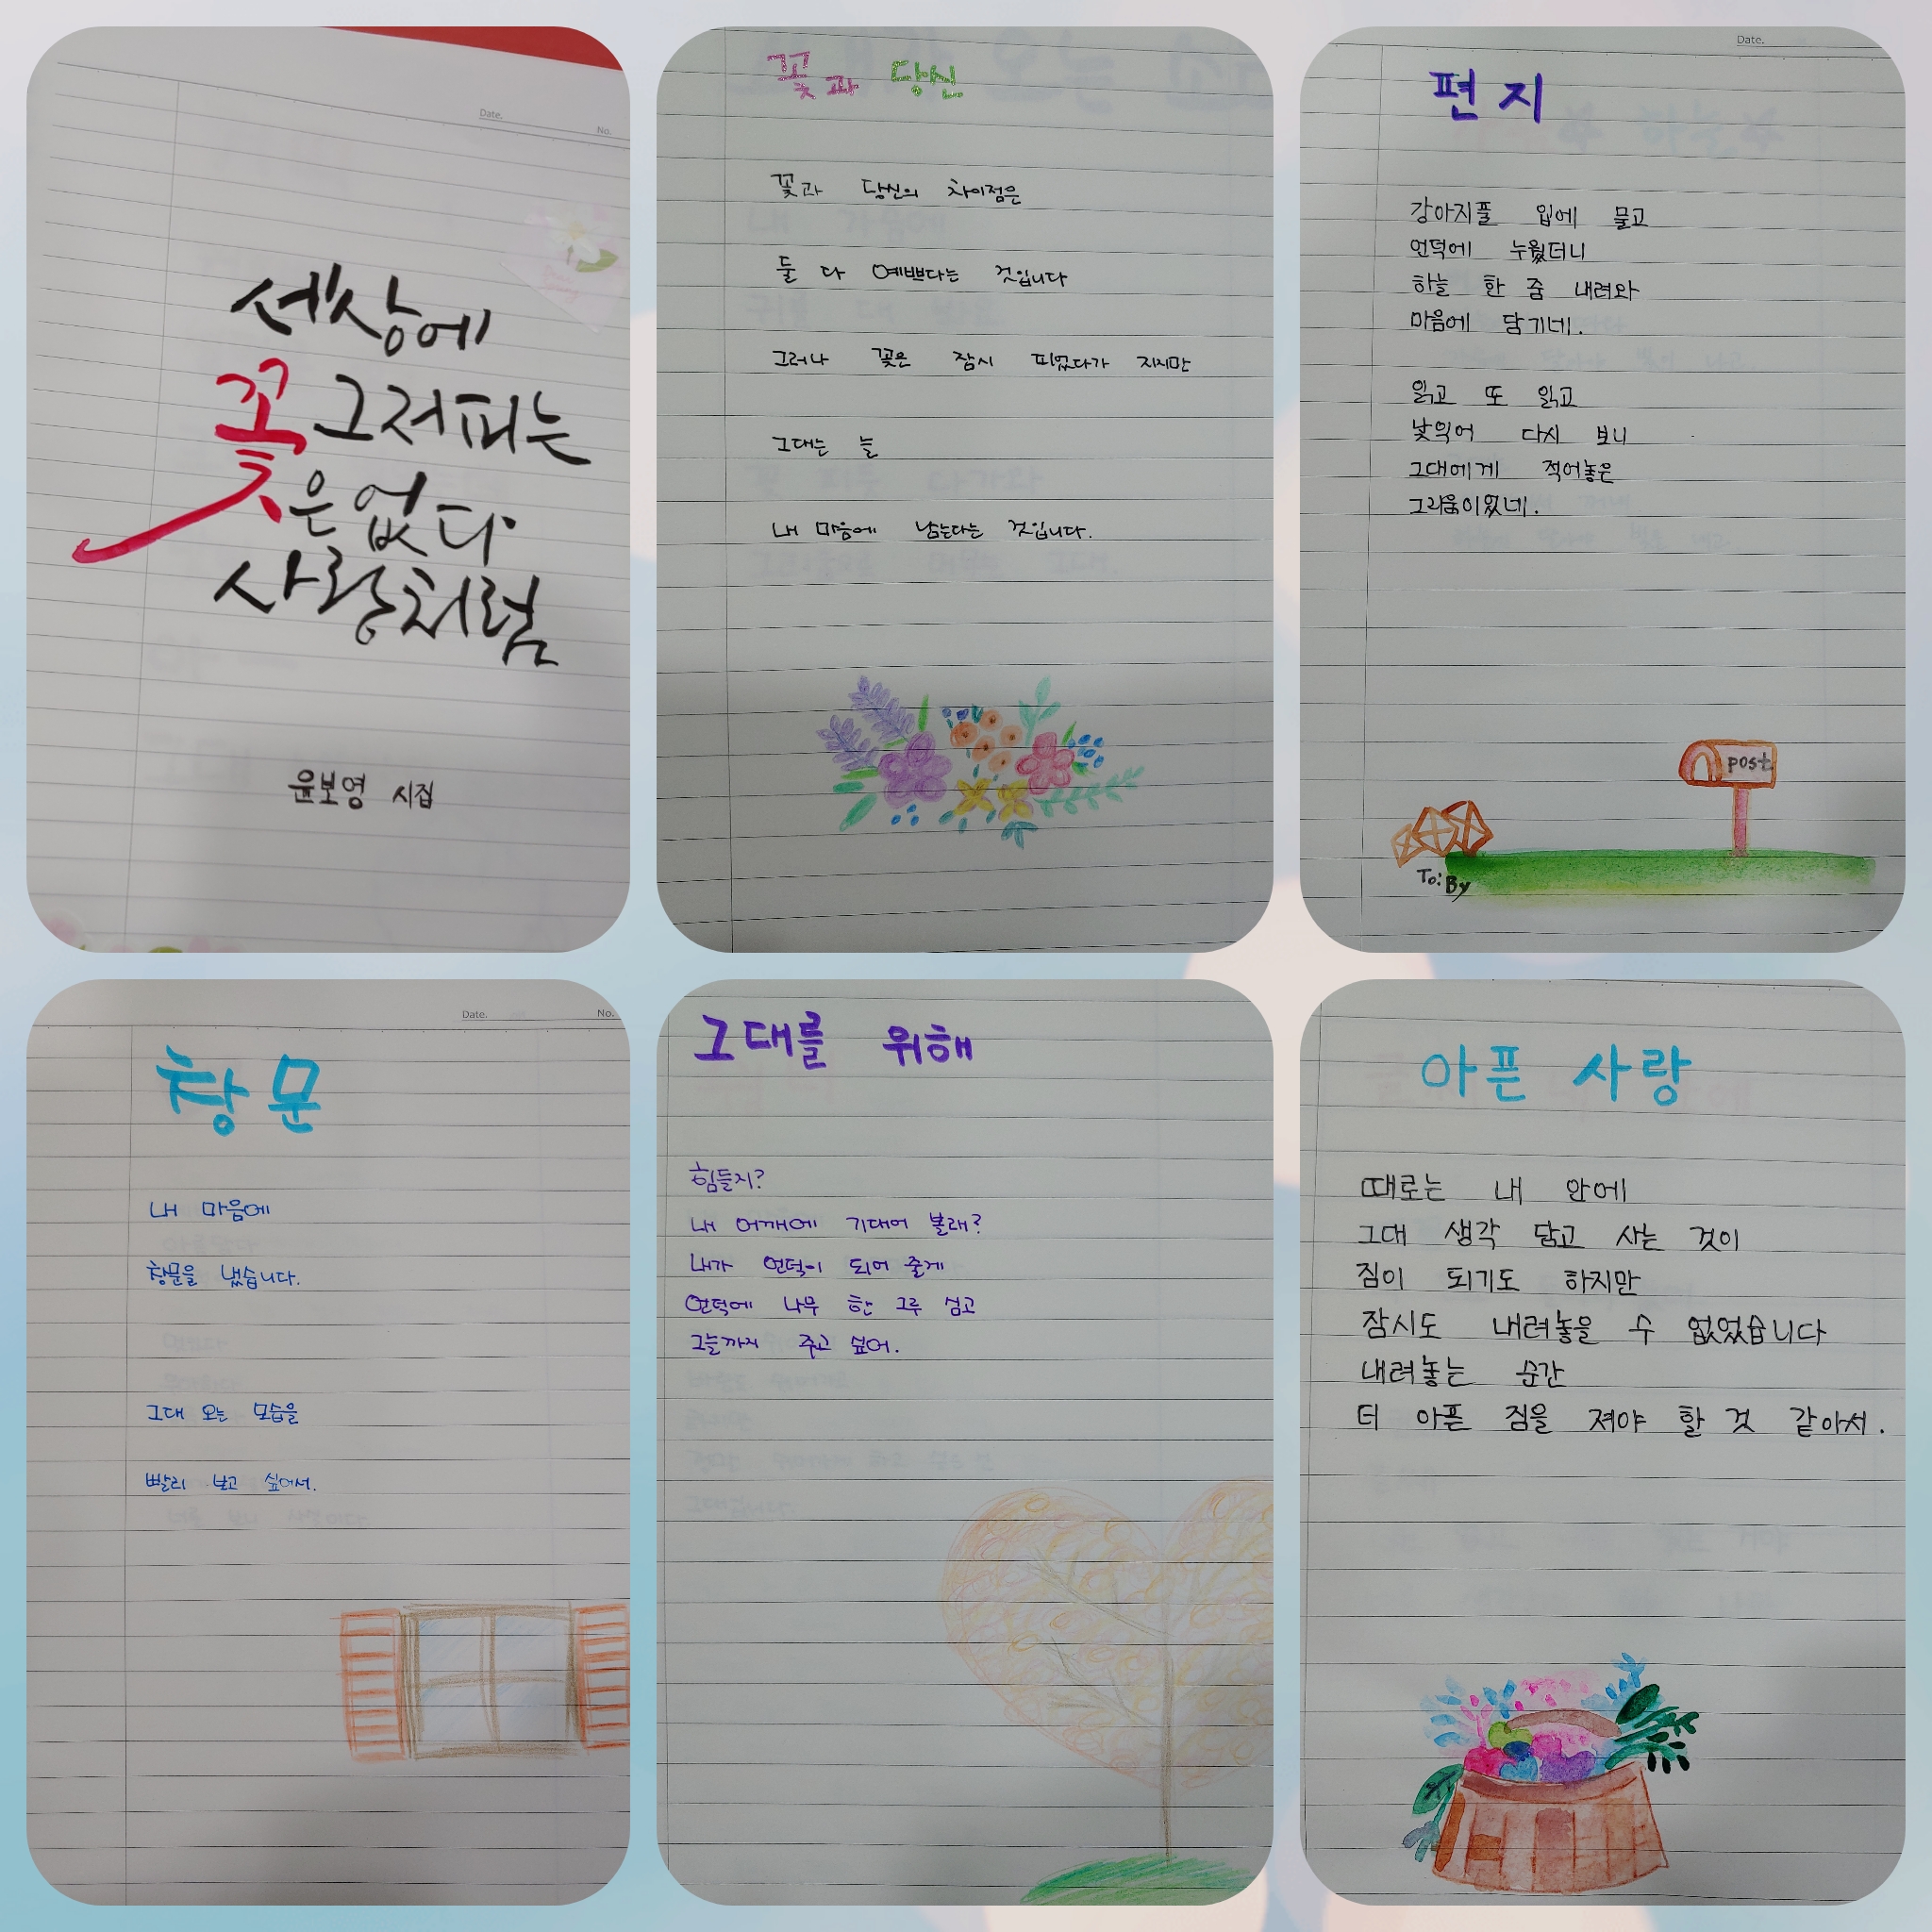 Date.
No.
세상에
꽃 그저 피는
은 없다
사랑처럼
윤보영 시집
꽃과 당신
꽃과 당신의 차이점은
둘 다 예쁘다는 것입니다
그러나 꽃은 잠시 피었다가 지지만
그대는 늘
내 마음에 남는다는 것입니다.
Date.
편지
강아지풀 입에 물고
언덕에 누웠더니
하늘 한 줌 내려와
마음에 담기네.
읽고 또 읽고
낯익어 다시 보니
그대에게 적어놓은
그리움이었네.
post
To: By
Date.
No.
창문
내 마음에
창문을 냈습니다.
그대 오는 모습을
빨리 보고 싶어서.
그대를 위해
힘들지?
내 어깨에 기대어 볼래?
내가 언덕이 되어 줄게
언덕에 나무 한 그루 심고
그늘까지 주고 싶어.
아픈 사랑
때로는 내 안에
그대 생각 담고 사는 것이
짐이 되기도 하지만
잠시도 내려놓을 수 없었습니다
내려놓는 순간
더 아픈 짐을 져야 할 것 같아서.